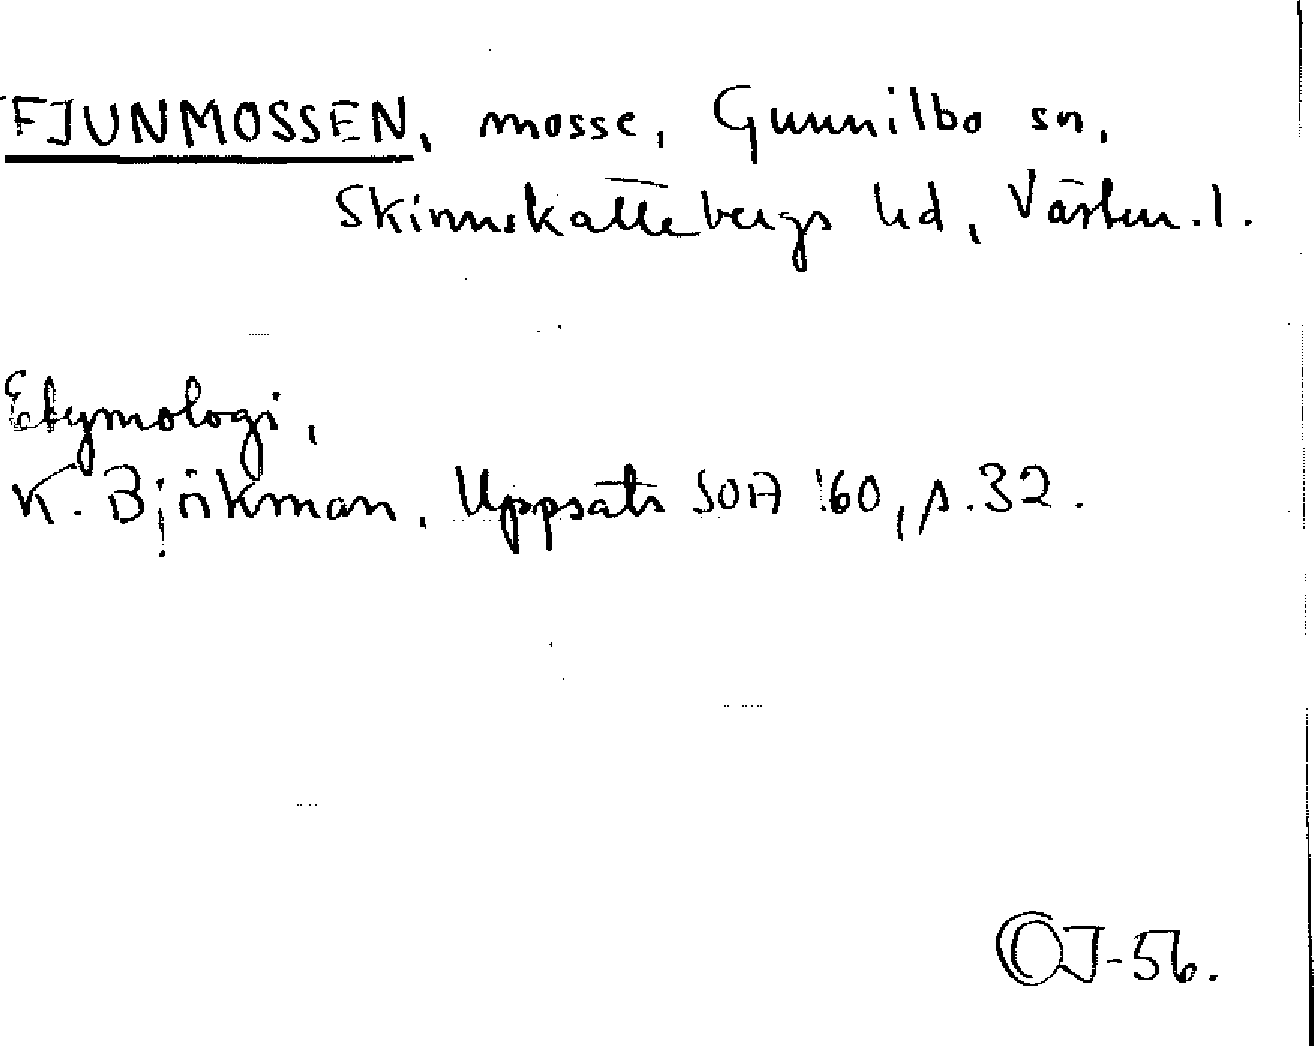 FJUNMOSSEN, mosse, Gunnilbo sn,
Skinnskattebergs hd, Västm. l.
Etymologi,
K. Björkman, Uppsats SOA '60, s. 32.
OJ-56.